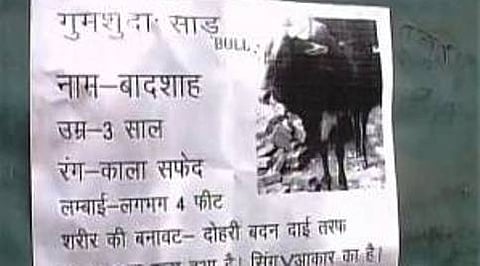 गुमशुदा साड़
BULL
नाम-बादशाह
उम्र-3 साल
रंग-काला सफेद
लम्बाई-लगभग 4 फीट
शरीर की बनावट- दोहरी बदन दाई तरफ
हुआ है। सिंग V आकार का है।